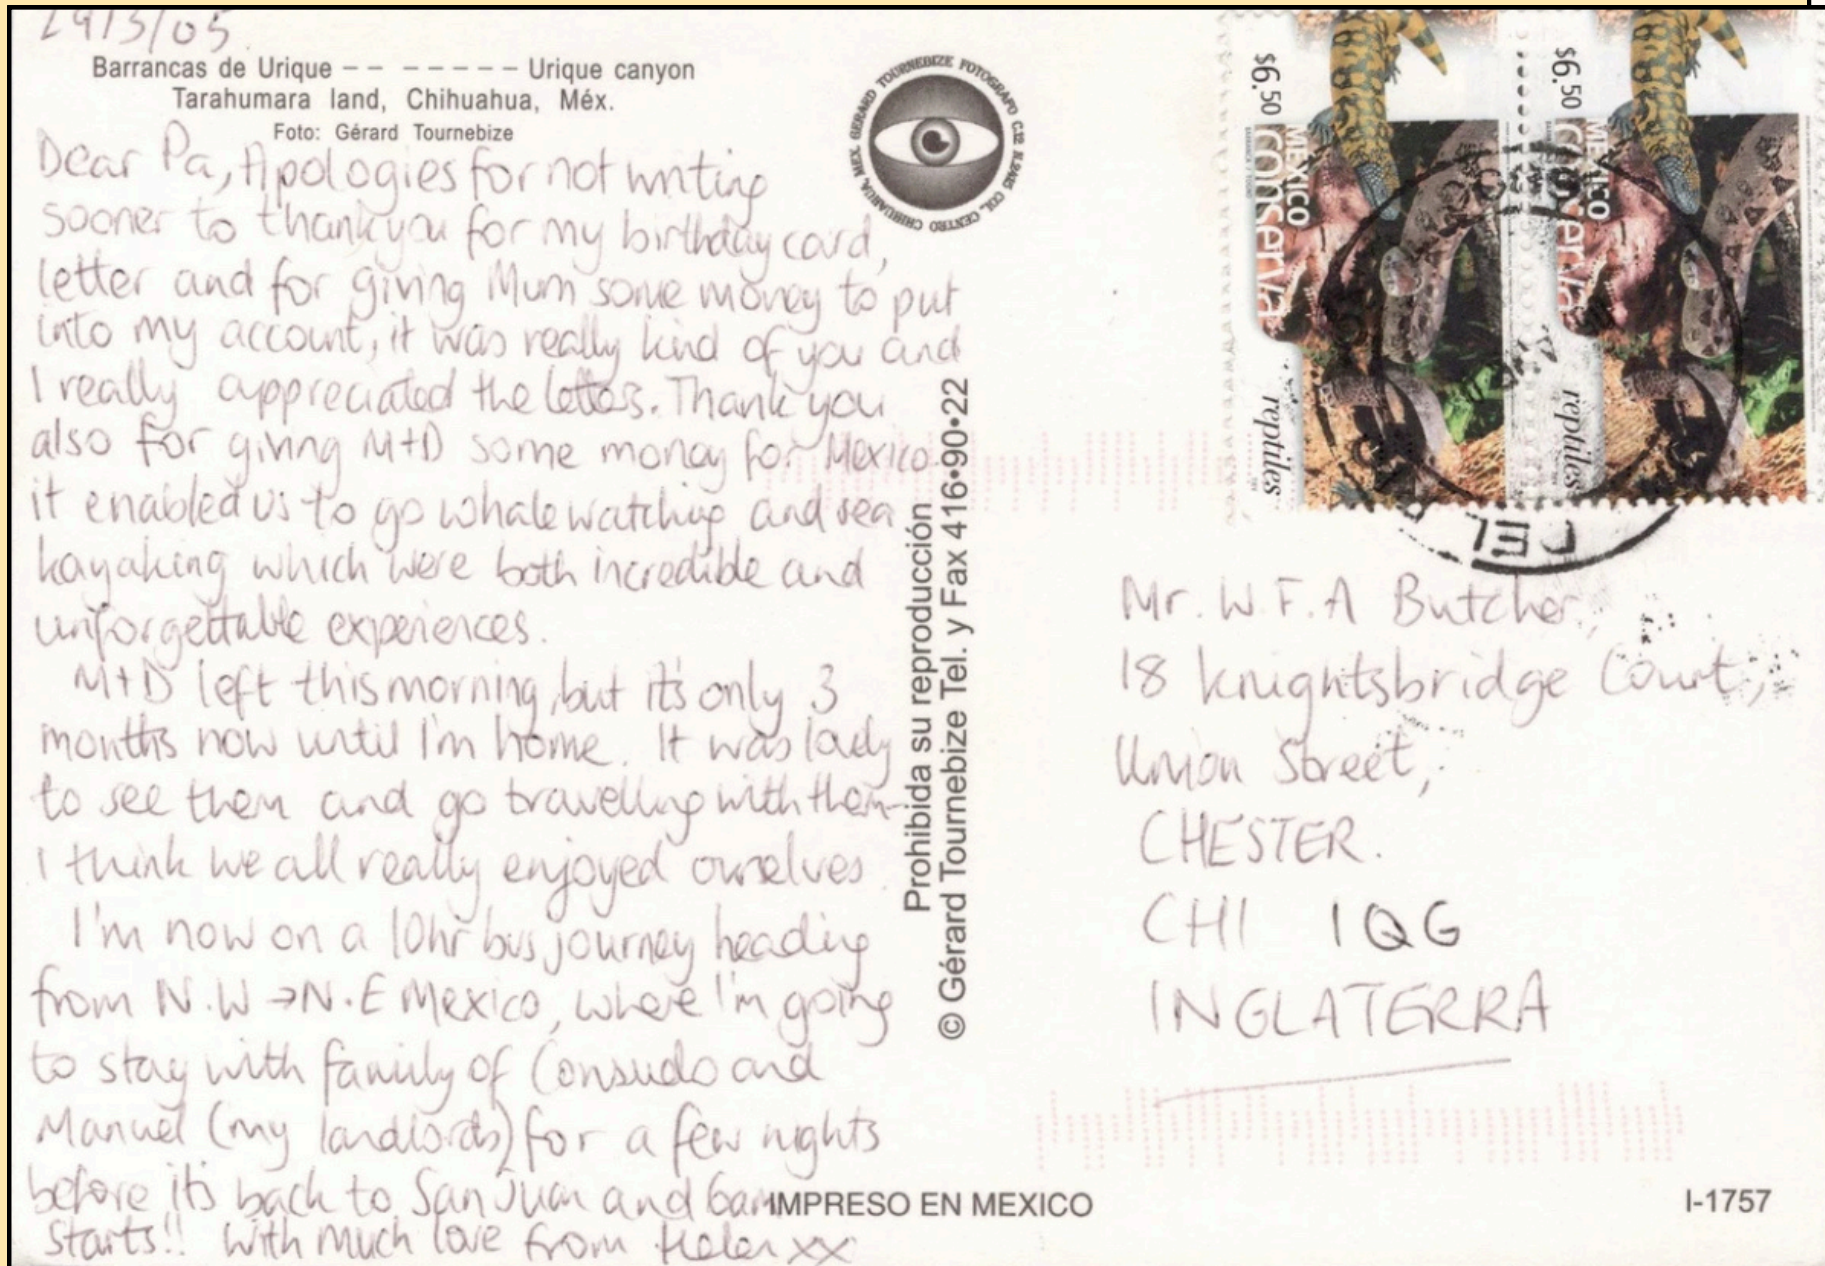 29/3/05
Barrancas de Urique -- ----- Urique canyon
Tarahumara land, Chihuahua, Méx.
Foto: Gérard Tournebize
Dear Pa, Apologies for not writing
sooner to thankyou for my birthday card,
letter and for giving Mum some money to put
into my account, it was really kind of you and
I really appreciated the letters. Thank you
also for giving M+D some money for Mexico-
it enabled us to go whale watching and sea
kayaking which were both incredible and
unforgettable experiences.
M+D left this morning, but it's only 3
months now until I'm home. It was lovely
to see them and go travelling with them-
I think we all really enjoyed ourselves.
I'm now on a 10hr bus journey heading
from N.W → N.E Mexico, where I'm going
to stay with family of Consuelo and
Manuel (my landlords) for a few nights
before it's back to San Juan and 6am
starts!! With much love from Helen xx
GERARD TOURNEBIZE FOTOGRAFO
COL. CENTRO CHIHUAHUA, MEX
Prohibida su reproducción
© Gérard Tournebize Tel. y Fax 416•90•22
$6.50
MEXICO
conserva
reptiles
$6.50
MEXICO
conserva
reptiles
Mr. W.F.A Butcher,
18 Knightsbridge Court,
Union Street,
CHESTER.
CH1 1QG
INGLATERRA
IMPRESO EN MEXICO
I-1757